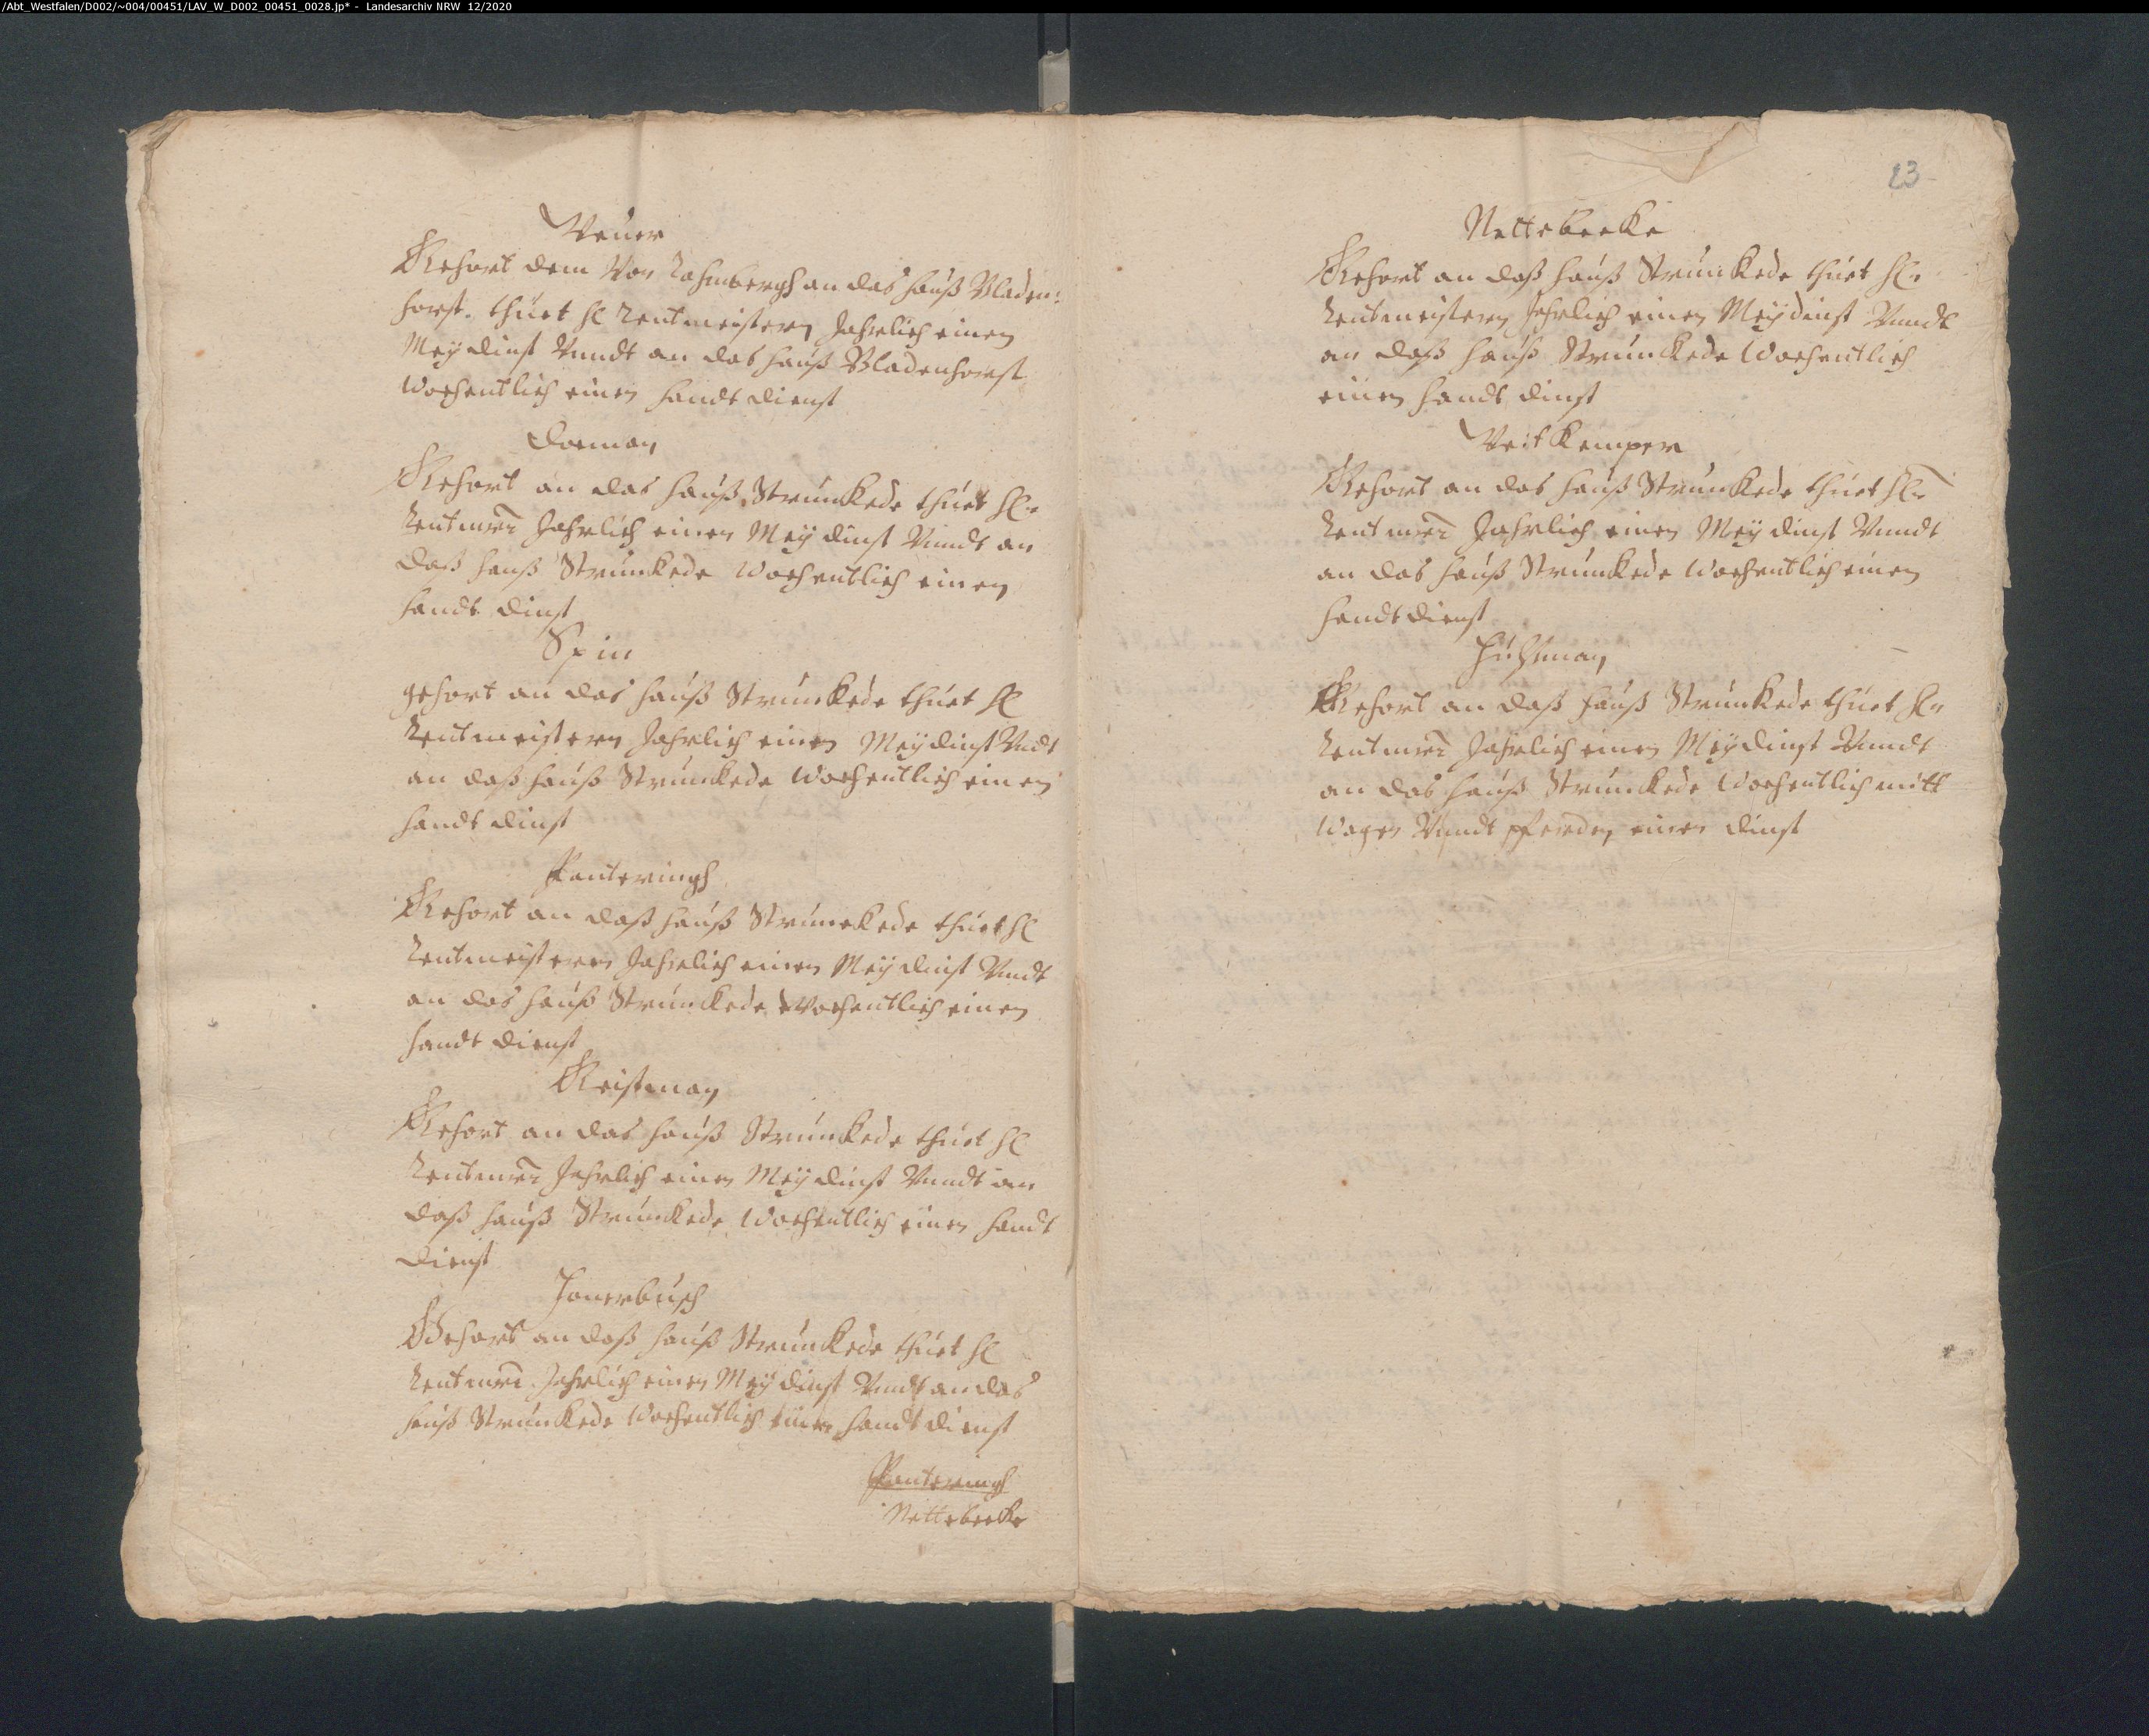 /Abt_Westfalen/D002/~004/00451/LAV_W_D002_00451_0028.jp* - Landesarchiv NRW 12/2020
Gehort dem Von an das hauß Bladen:
horst. thuet hl Rentmeistern Jahrlich einen
Meydinst Vundt an das hauß Bladenhorst
Wochentlich einen handt dienst
Doeman
Gehort an das hauß Strunkede thuet hl.
Rentmrn Jahrlich einen Mey dinst Vundt an
daß hauß Strunkede Wochentlich einen
handt dinst
Spin
gehort an das hauß Strunkede thuet hl
Rentmeistern Jahrlich einen Meydinst Vndt
an daß hauß Strunckede Wochentlich einen
handt dinst
Panteringh
Gehort an daß hauß Strunckede thuet hl
Rentmeistern Jahrlich einen Mey dinst Vndt
an das hauß Strunckede Wochentlich einen
handt dienst
Geistman
Gehort an das hauß Strunkede thuet hl
Rentmrn Jahrlich einen Mey dinst Vundt an
daß hauß Strunckede Wochentlich einen handt
dienst
Gehort an daß hauß Strunkede thuet hl
Rentmrn Jahrlich einen Mey dinst Vndt an das
hauß Strunckede Wochentlich einen handt dienst
Panteringh
Nettebecke
23
Nettebecke
Gehort an daß hauß Strunckede thuet hl.
Rentmeistern Jahrlich einen Meydinst Vundt
an daß hauß Strunckede Wochentlich
einen handt dinst
Veitkemper
Gehort an das hauß Strunkede thuet hl.
Rentmrn Jahrlich einen Mey dinst Vundt
an das hauß Strunckede Wochentlich einen
handt dienst
Gehort an daß hauß Strunkede thuet hl.
Rentmrn Jahrlich einen Meydinst Vundt
an das hauß Strunckede Wochentlich mitt
Wagen Vundt pferden einen dinst